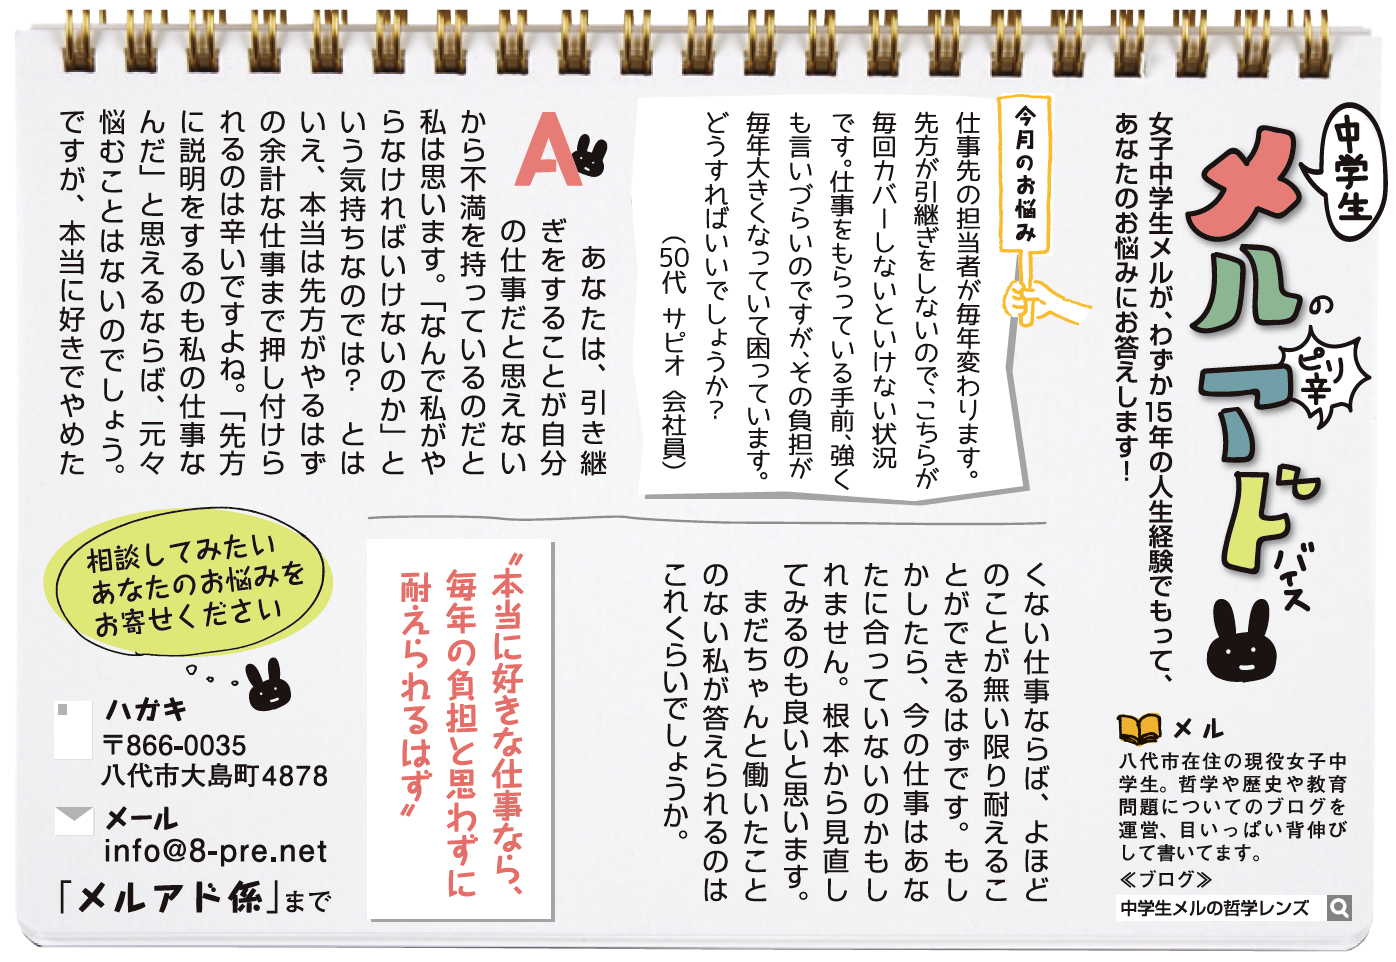 中学生
メルの
ピリ辛
アドバイス
女子中学生メルが、わずか15年の人生経験でもって、
あなたのお悩みにお答えします！
メル
八代市在住の現役女子中
学生。哲学や歴史や教育
問題についてのブログを
運営、目いっぱい背伸び
して書いてます。
≪ブログ≫
中学生メルの哲学レンズ
今月のお悩み
仕事先の担当者が毎年変わります。
先方が引継ぎをしないので、こちらが
毎回カバーしないといけない状況
です。仕事をもらっている手前、強く
も言いづらいのですが、その負担が
毎年大きくなっていて困っています。
どうすればいいでしょうか？
（50代 サピオ 会社員）
A
あなたは、引き継
ぎをすることが自分
の仕事だと思えない
から不満を持っているのだと
私は思います。「なんで私がや
らなければいけないのか」と
いう気持ちなのでは？　とは
いえ、本当は先方がやるはず
の余計な仕事まで押し付けら
れるのは辛いですよね。「先方
に説明をするのも私の仕事な
んだ」と思えるならば、元々
悩むことはないのでしょう。
ですが、本当に好きでやめた
くない仕事ならば、よほど
のことが無い限り耐えるこ
とができるはずです。もし
かしたら、今の仕事はあな
たに合っていないのかもし
れません。根本から見直し
てみるのも良いと思います。
まだちゃんと働いたこと
のない私が答えられるのは
これくらいでしょうか。
〝本当に好きな仕事なら、
毎年の負担と思わずに
耐えられるはず〟
相談してみたい
あなたのお悩みを
お寄せください
ハガキ
〒866-0035
八代市大島町4878
メール
info@8-pre.net
「メルアド係」まで